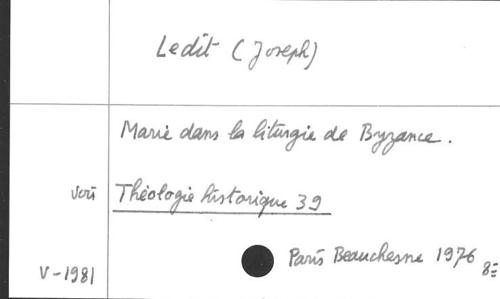 Ledit (Joseph)
Marie dans la liturgie de Byzance.
voir Théologie historique 39
Paris Beauchesne 1976 8º
V-1981